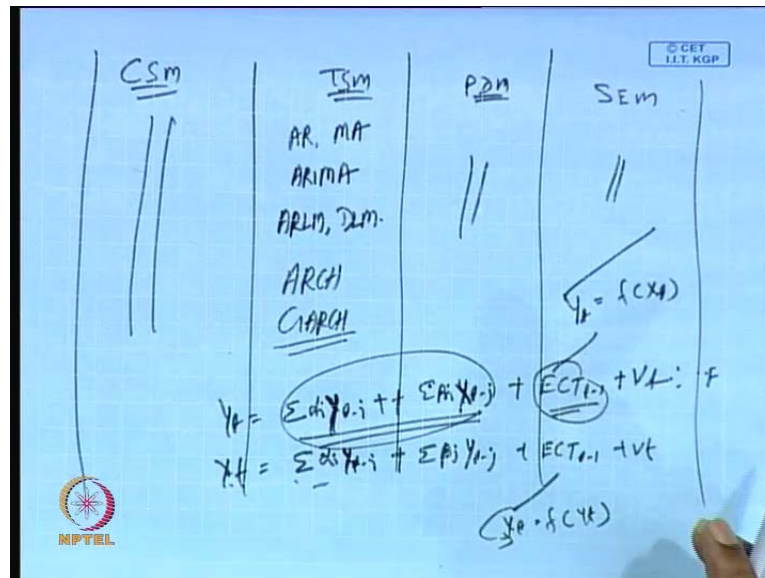 © CET
I.I.T. KGP
CSM TSM PDM SEM
AR, MA
ARIMA
ARLM, DLM.
ARCH
GARCH
Yt = f(Xt)
Yt = Σαi Yt-i + + Σβj Xt-j + ECTt-1 + Vt :
Xt = Σαi Xt-i + Σβj Yt-j + ECTt-1 + Vt
Xt = f(Yt)
NPTEL